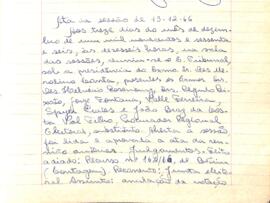 Ata da sessão de 13-12-66
Aos treze dias do mês de dezem-
bro de um mil novecentos e sessenta
e seis, às dezesseis horas, na sala
das sessões, reuniu-se o E. Tribunal,
sob a presidência do Exmo. Sr. Des.
Costa, presentes os Exmos. Srs.
Drs.
Jorge Fontana,
e João Braz da Costa
Val Filho, Procurador Regional
Eleitoral, substituto. Aberta a sessão
foi lida e aprovada a ata da reu-
nião anterior. Julgamentos. Feito
adiado: Recurso nº de
(Contagem). Recorrente: Junta eleito-
ral. Assunto: anulação da votação